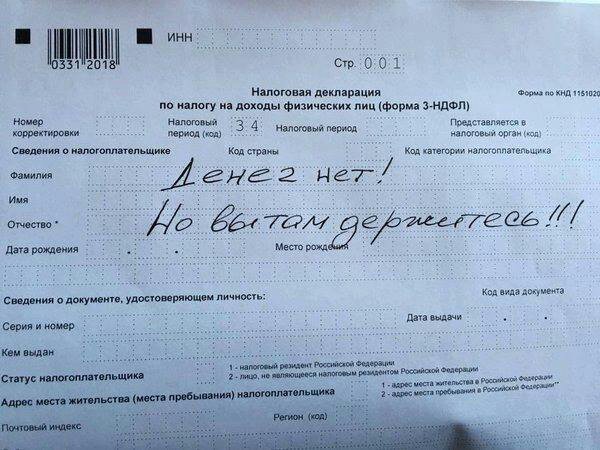 0331 2018
ИНН
Стр. 001
Налоговая декларация
по налогу на доходы физических лиц (форма 3-НДФЛ)
Форма по КНД 1151020
Номер корректировки
Налоговый период (код) 34
Налоговый период
Представляется в налоговый орган (код)
Сведения о налогоплательщике
Код страны
Код категории налогоплательщика
Фамилия
Денег нет!
Имя
Отчество *
Но вы там держитесь!!!
Дата рождения
Место рождения
Сведения о документе, удостоверяющем личность:
Код вида документа
Серия и номер
Дата выдачи
Кем выдан
Статус налогоплательщика
1 - налоговый резидент Российской Федерации
2 - лицо, не являющееся налоговым резидентом Российской Федерации
Адрес места жительства (места пребывания) налогоплательщика
1 - адрес места жительства в Российской Федерации
2 - адрес места пребывания в Российской Федерации**
Почтовый индекс
Регион (код)